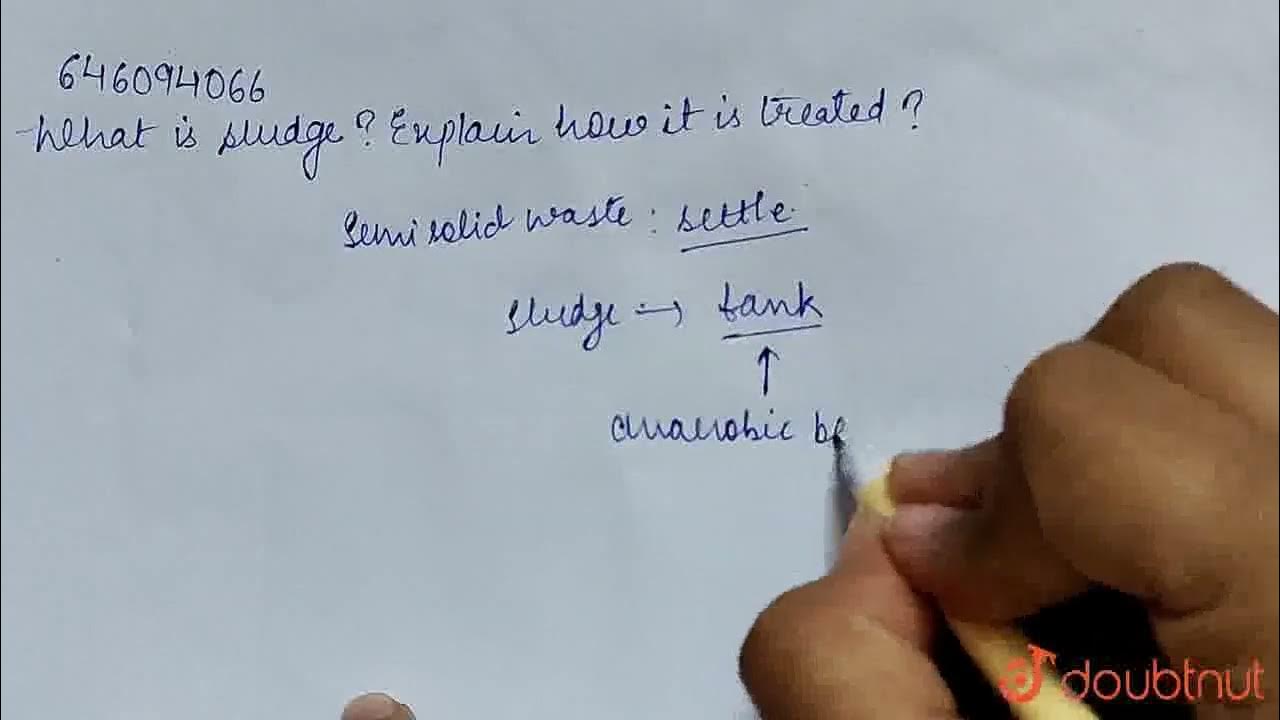 646094066
What is sludge? Explain how it is treated?
Semisolid waste: settle.
sludge → tank
↑
anaerobic be
doubtnut